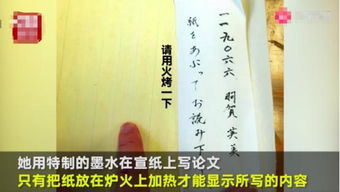 一一九〇六六 羽賀英美
紙をあぶってお読み下
请用火烤一下
她用特制的墨水在宣纸上写论文
只有把纸放在炉火上加热才能显示所写的内容